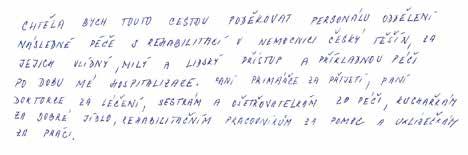 CHTĚLA BYCH TOUTO CESTOU PODĚKOVAT PERSONÁLU ODDĚLENÍ
NÁSLEDNÉ PÉČE S REHABILITACÍ V NEMOCNICI ČESKÝ TĚŠÍN, ZA
JEJICH VLÍDNÝ, MILÝ A LIDSKÝ PŘÍSTUP A PŘÍKLADNOU PÉČI
PO DOBU MÉ HOSPITALIZACE. PANÍ PRIMÁŘCE ZA PŘIJETÍ, PANÍ
DOKTORCE ZA LÉČENÍ, SESTRÁM A OŠETŘOVATELKÁM ZA PÉČI, KUCHAŘKÁM
ZA DOBRÉ JÍDLO, REHABILITAČNÍM PRACOVNÍKŮM ZA POMOC A UKLÍZEČKÁM
ZA PRÁCI.